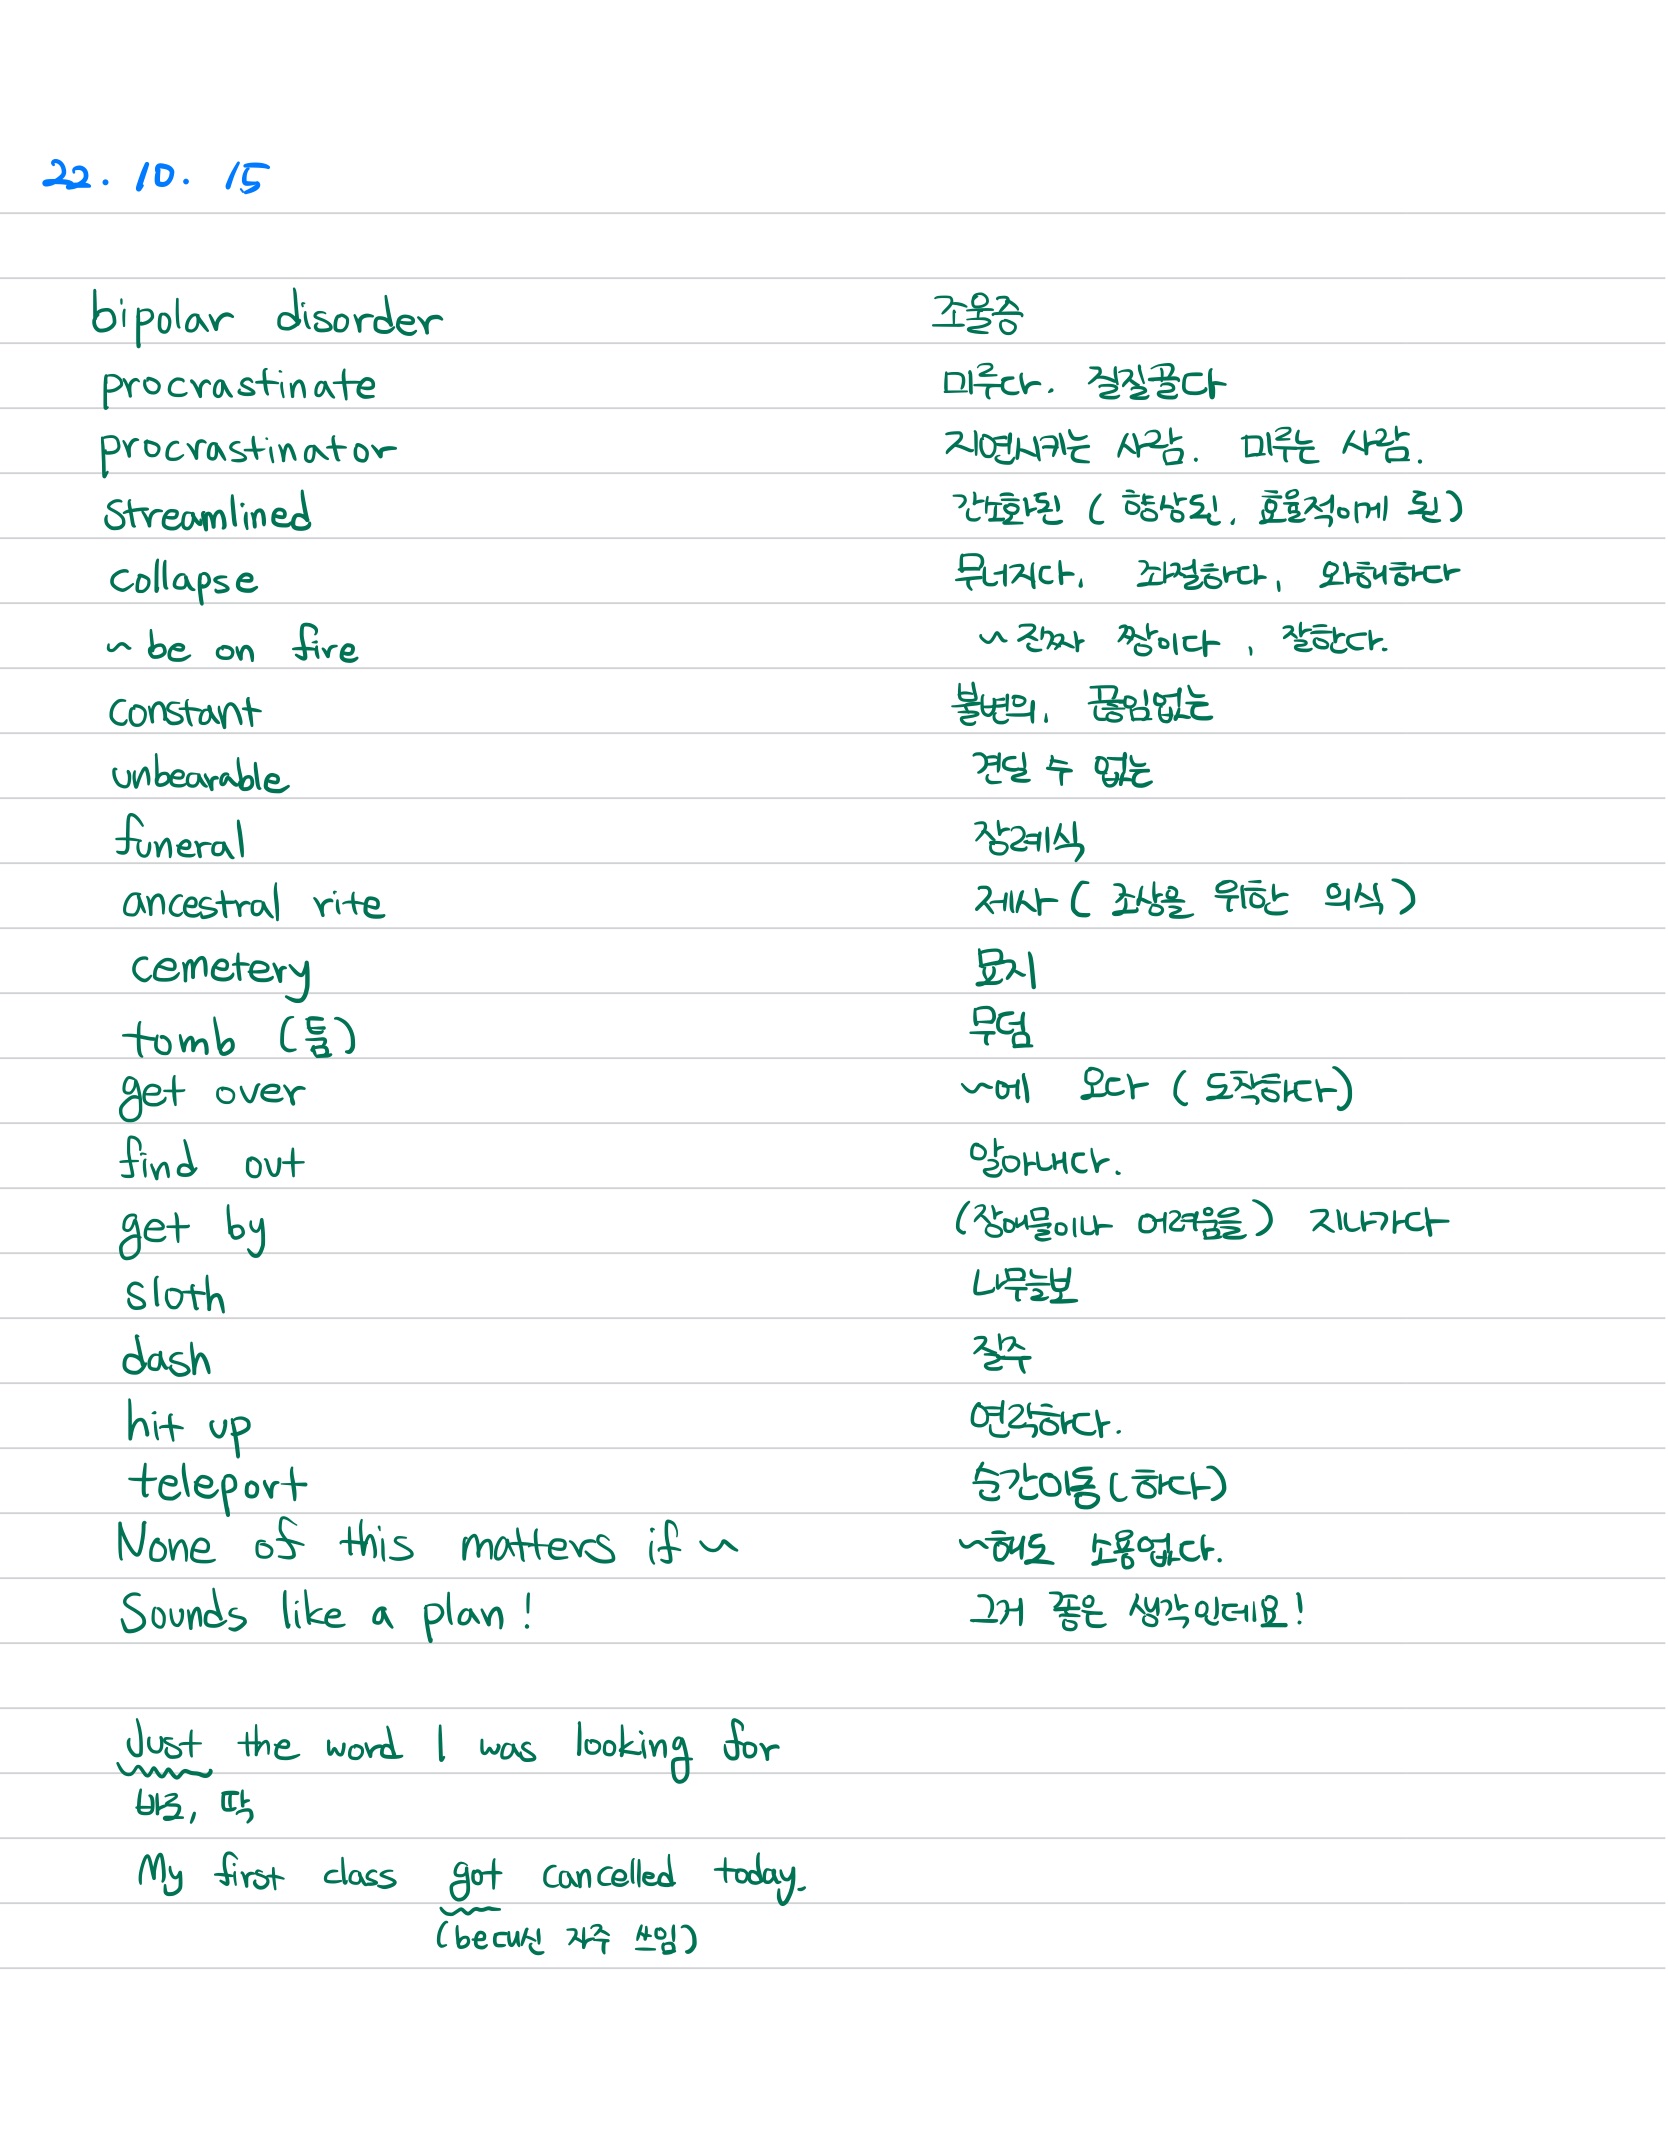 22. 10. 15
bipolar disorder 조울증
procrastinate 미루다. 질질끌다
procrastinator 지연시키는 사람. 미루는 사람.
streamlined 간소화된 (향상된, 효율적이게 된)
collapse 무너지다. 좌절하다, 와해하다
~ be on fire ~ 진짜 짱이다, 잘한다.
constant 불변의, 끊임없는
unbearable 견딜 수 없는
funeral 장례식
ancestral rite 제사 (조상을 위한 의식)
cemetery 묘지
tomb (툼) 무덤
get over ~에 오다 (도착하다)
find out 알아내다.
get by (장애물이나 어려움을) 지나가다
sloth 나무늘보
dash 질주
hit up 연락하다.
teleport 순간이동(하다)
None of this matters if ~ ~해도 소용없다.
Sounds like a plan! 그거 좋은 생각인데요!
Just the word I was looking for
바로, 딱
My first class got cancelled today.
(be대신 자주 쓰임)